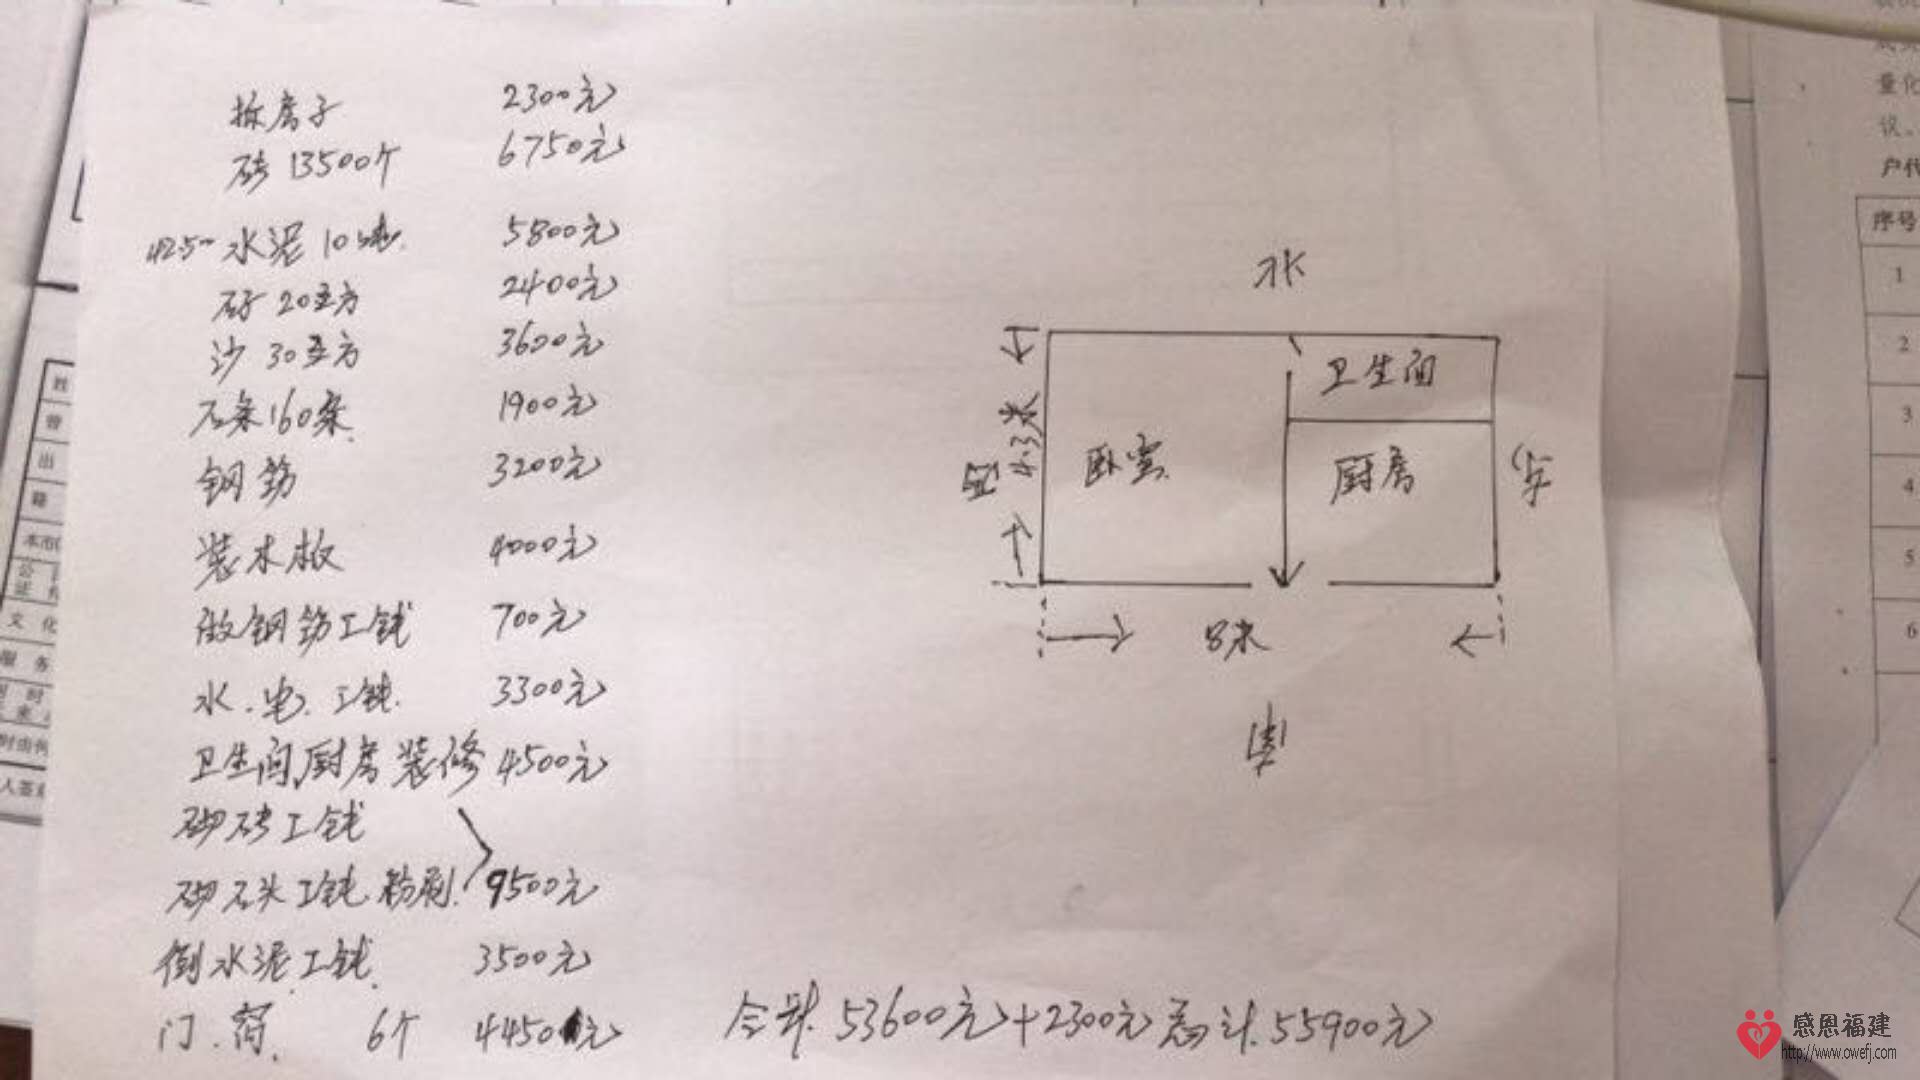 拆房子 2300元
砖 13500个 6750元
425# 水泥 10吨 5800元
石子 20立方 2400元
沙 30立方 3600元
石条160条 1900元
钢筋 3200元
装木板 4000元
做钢筋工钱 700元
水.电.工钱 3300元
卫生间,厨房装修 4500元
砌砖工钱
砌石头工钱.粉刷. 9500元
倒水泥工钱. 3500元
门.窗. 6个 4450元
合计 53600元+2300元总计.55900元
北
卫生间
4.3米
卧室
厨房
东
8米
南
量化
议、
户代
序号
1
2
3
4
5
6
姓
曾
出
籍
文 化
服 务
感恩福建
http://www.owefj.com